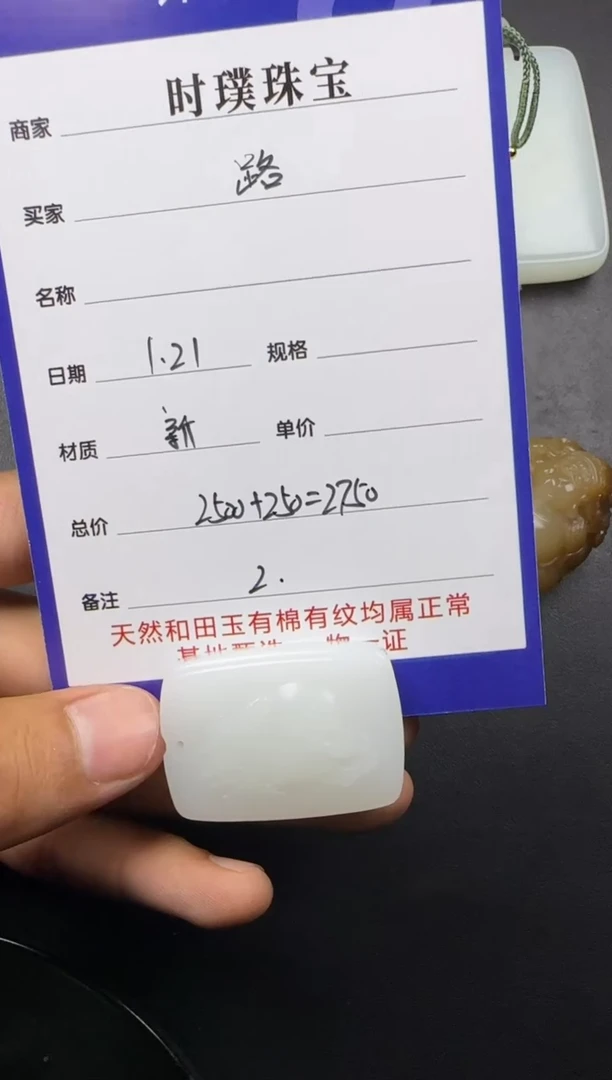 商家 时璞珠宝
买家 路
名称
日期 1.21 规格
材质 新 单价
总价 2500+250=2750
备注 2.
天然和田玉有棉有纹均属正常
基地甄选 一物一证